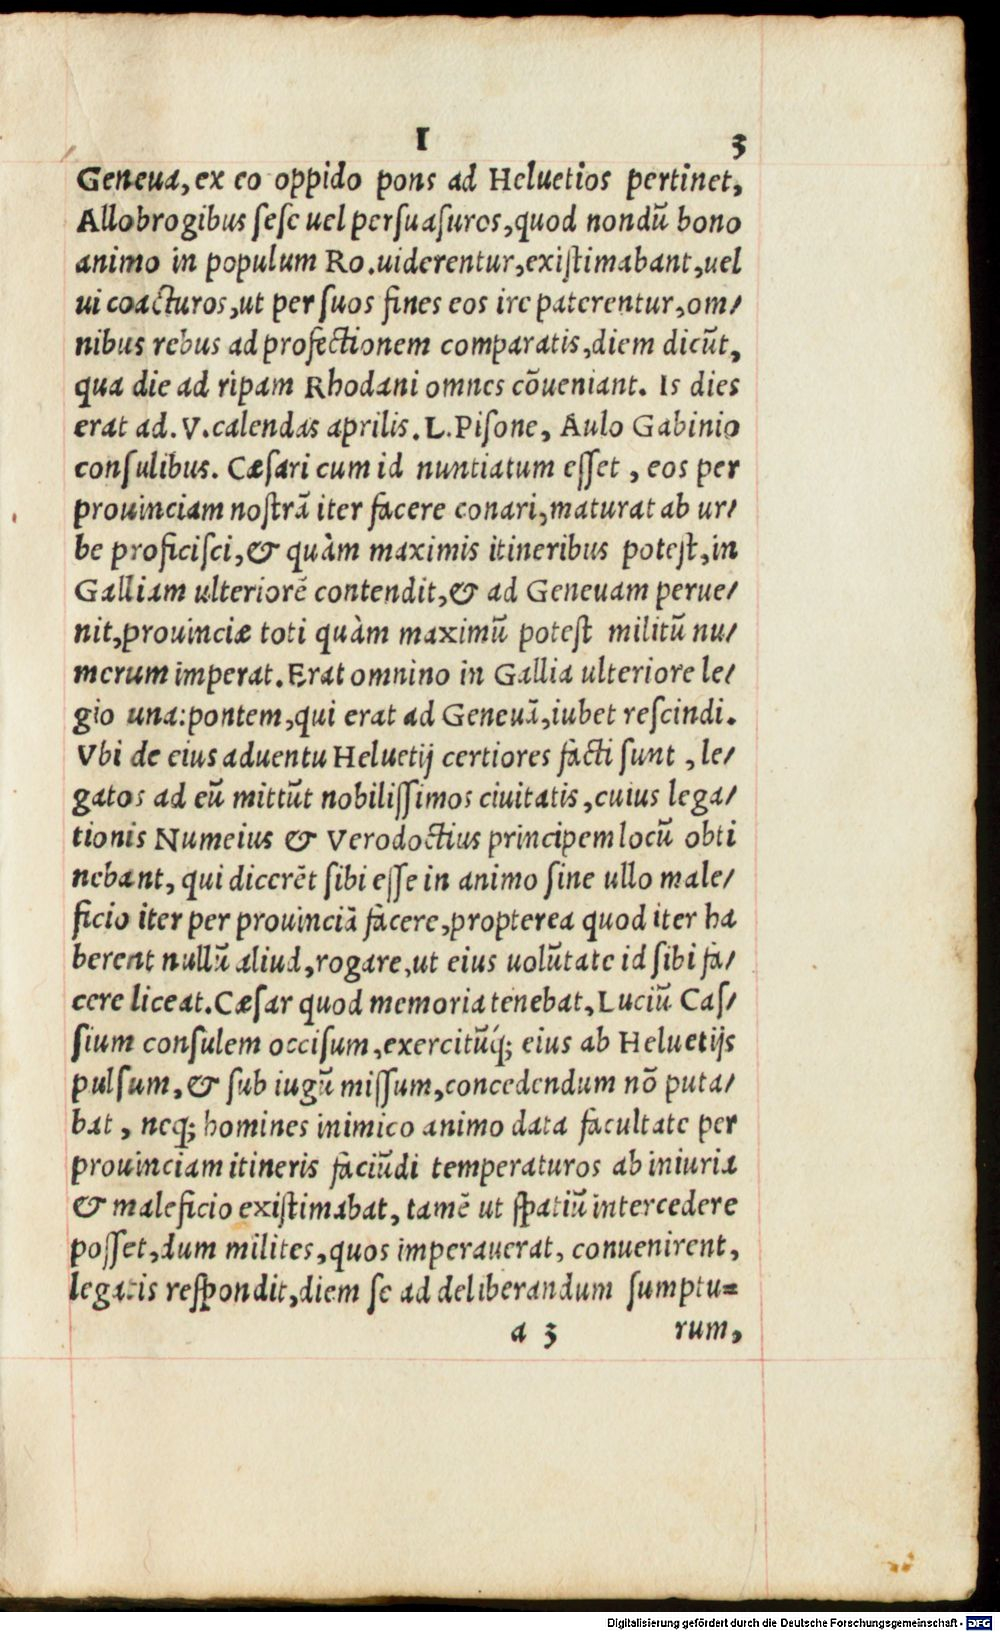 I 3
Geneua, ex eo oppido pons ad Heluetios pertinet,
Allobrogibus sese uel persuasuros, quod nondū bono
animo in populum Ro. uiderentur, existimabant, uel
ui coacturos, ut per suos fines eos ire paterentur, om/
nibus rebus ad profectionem comparatis, diem dicūt,
qua die ad ripam Rhodani omnes cōueniant. Is dies
erat ad. V. calendas aprilis. L. Pisone, Aulo Gabinio
consulibus. Cæsari cum id nuntiatum esset, eos per
prouinciam nostrā iter facere conari, maturat ab ur/
be proficisci, & quàm maximis itineribus potest, in
Galliam ulteriorē contendit, & ad Geneuam perue/
nit, prouinciæ toti quàm maximū potest militū nu/
merum imperat. Erat omnino in Gallia ulteriore le/
gio una: pontem, qui erat ad Geneuā, iubet rescindi.
Vbi de eius aduentu Heluetij certiores facti sunt, le/
gatos ad eū mittūt nobilissimos ciuitatis, cuius lega/
tionis Numeius & Verodoctius principem locū obti
nebant, qui dicerēt sibi esse in animo sine ullo male/
ficio iter per prouinciā facere, propterea quod iter ha
berent nullū aliud, rogare, ut eius uolūtate id sibi fa/
cere liceat. Cæsar quod memoria tenebat, Luciū Cas/
sium consulem occisum, exercitūq́; eius ab Heluetijs
pulsum, & sub iugū missum, concedendum nō puta/
bat, neq; homines inimico animo data facultate per
prouinciam itineris faciūdi temperaturos ab iniuria
& maleficio existimabat, tamē ut spatiū intercedere
posset, dum milites, quos imperauerat, conuenirent,
legatis respondit, diem se ad deliberandum sumptu=
a 3 rum,
Digitalisierung gefördert durch die Deutsche Forschungsgemeinschaft - DFG